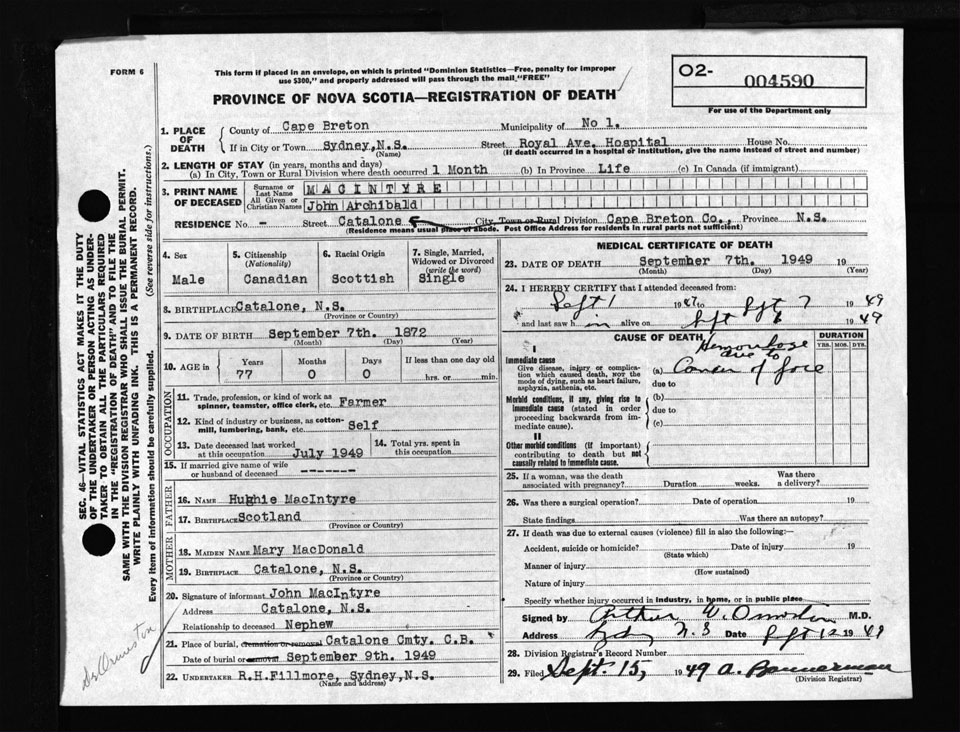 FORM 6
This form if placed in an envelope, on which is printed "Dominion Statistics—Free, penalty for improper
use $300," and properly addressed will pass through the mail "FREE"
O2-
004590
For use of the Department only
PROVINCE OF NOVA SCOTIA—REGISTRATION OF DEATH
1. PLACE OF DEATH { County of Cape Breton Municipality of No 1.
If in City or Town Sydney, N.S. (Name) Street Royal Ave. Hospital House No.
(If death occurred in a hospital or institution, give the name instead of street and number)
2. LENGTH OF STAY (in years, months and days)
(a) In City, Town or Rural Division where death occurred 1 Month (b) In Province Life (c) In Canada (if immigrant)
3. PRINT NAME OF DECEASED { Surname or Last Name MACINTYRE
All Given or Christian Names John Archibald
RESIDENCE No. - Street Catalone City Town or Rural Division Cape Breton Co., Province N.S.
(Residence means usual place of abode. Post Office Address for residents in rural parts not sufficient)
4. Sex Male
5. Citizenship (Nationality) Canadian
6. Racial Origin Scottish
7. Single, Married, Widowed or Divorced (write the word) Single
8. BIRTHPLACE Catalone, N.S.
(Province or Country)
9. DATE OF BIRTH September 7th. 1872
(Month) (Day) (Year)
10. AGE in { Years Months Days If less than one day old
77 0 0 hrs. or min.
OCCUPATION
11. Trade, profession, or kind of work as spinner, teamster, office clerk, etc. Farmer
12. Kind of industry or business, as cotton-mill, lumbering, bank, etc. Self
13. Date deceased last worked at this occupation July 1949
14. Total yrs. spent in this occupation
15. If married give name of wife or husband of deceased -------
FATHER
16. NAME Hughie MacIntyre
17. BIRTHPLACE Scotland
(Province or Country)
MOTHER
18. MAIDEN NAME Mary MacDonald
19. BIRTHPLACE Catalone, N.S.
(Province or Country)
20. Signature of informant John MacIntyre
Address Catalone, N.S.
Relationship to deceased Nephew
21. Place of burial, cremation or removal Catalone Cmty. C.B.
Date of burial or removal September 9th. 1949
22. UNDERTAKER R.H.Fillmore, Sydney,N.S.
(Name and address)
MEDICAL CERTIFICATE OF DEATH
23. DATE OF DEATH September 7th. 1949 19
(Month) (Day) (Year)
24. I HEREBY CERTIFY that I attended deceased from:
Sept 1 19 to Sept 7 1949
and last saw h im alive on Sept 6 1949
CAUSE OF DEATH
DURATION
YRS. MOS. DYS.
I
Immediate cause
Give disease, injury or complication which caused death, NOT the mode of dying, such as heart failure, asphyxia, asthenia, etc.
Hemorrhage
due to
(a) Cancer of face
due to
Morbid conditions, if any, giving rise to immediate cause (stated in order proceeding backwards from immediate cause).
(b)
due to
(c)
II
Other morbid conditions (if important) contributing to death but not causally related to immediate cause.
25. If a woman, was the death associated with pregnancy? Duration weeks. Was there a delivery?
26. Was there a surgical operation? Date of operation 19
State findings Was there an autopsy?
27. If death was due to external causes (violence) fill in also the following:—
Accident, suicide or homicide? Date of injury 19
(State which)
Manner of injury
(How sustained)
Nature of injury
Specify whether injury occurred in industry, in home, or in public place
Signed by Arthur W. Ormiston M.D.
Address Sydney N.S Date Sept 12 1949
28. Division Registrar's Record Number
29. Filed Sept. 15, 1949 A. Bannerman
(Division Registrar)
SEC. 46—VITAL STATISTICS ACT MAKES IT THE DUTY
OF THE UNDERTAKER OR PERSON ACTING AS UNDER-
TAKER TO OBTAIN ALL THE PARTICULARS REQUIRED
IN THE "REGISTRATION OF DEATH" AND TO FILE THE
SAME WITH THE DIVISION REGISTRAR WHO SHALL ISSUE THE BURIAL PERMIT.
WRITE PLAINLY WITH UNFADING INK. THIS IS A PERMANENT RECORD.
Every item of information should be carefully supplied. (See reverse side for instructions.)
Dr Ormiston